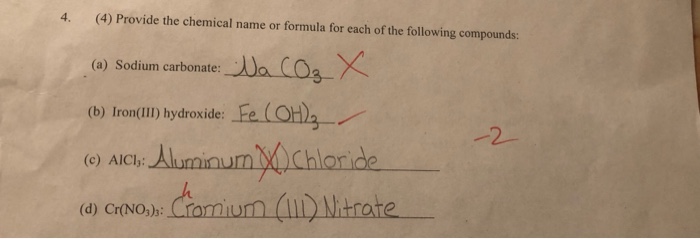 4. (4) Provide the chemical name or formula for each of the following compounds:
(a) Sodium carbonate: Na CO3 X
(b) Iron(III) hydroxide: Fe(OH)3 ✓
-2
(c) AlCl3: Aluminum Chloride
h
(d) Cr(NO3)3: Cromium (III) Nitrate